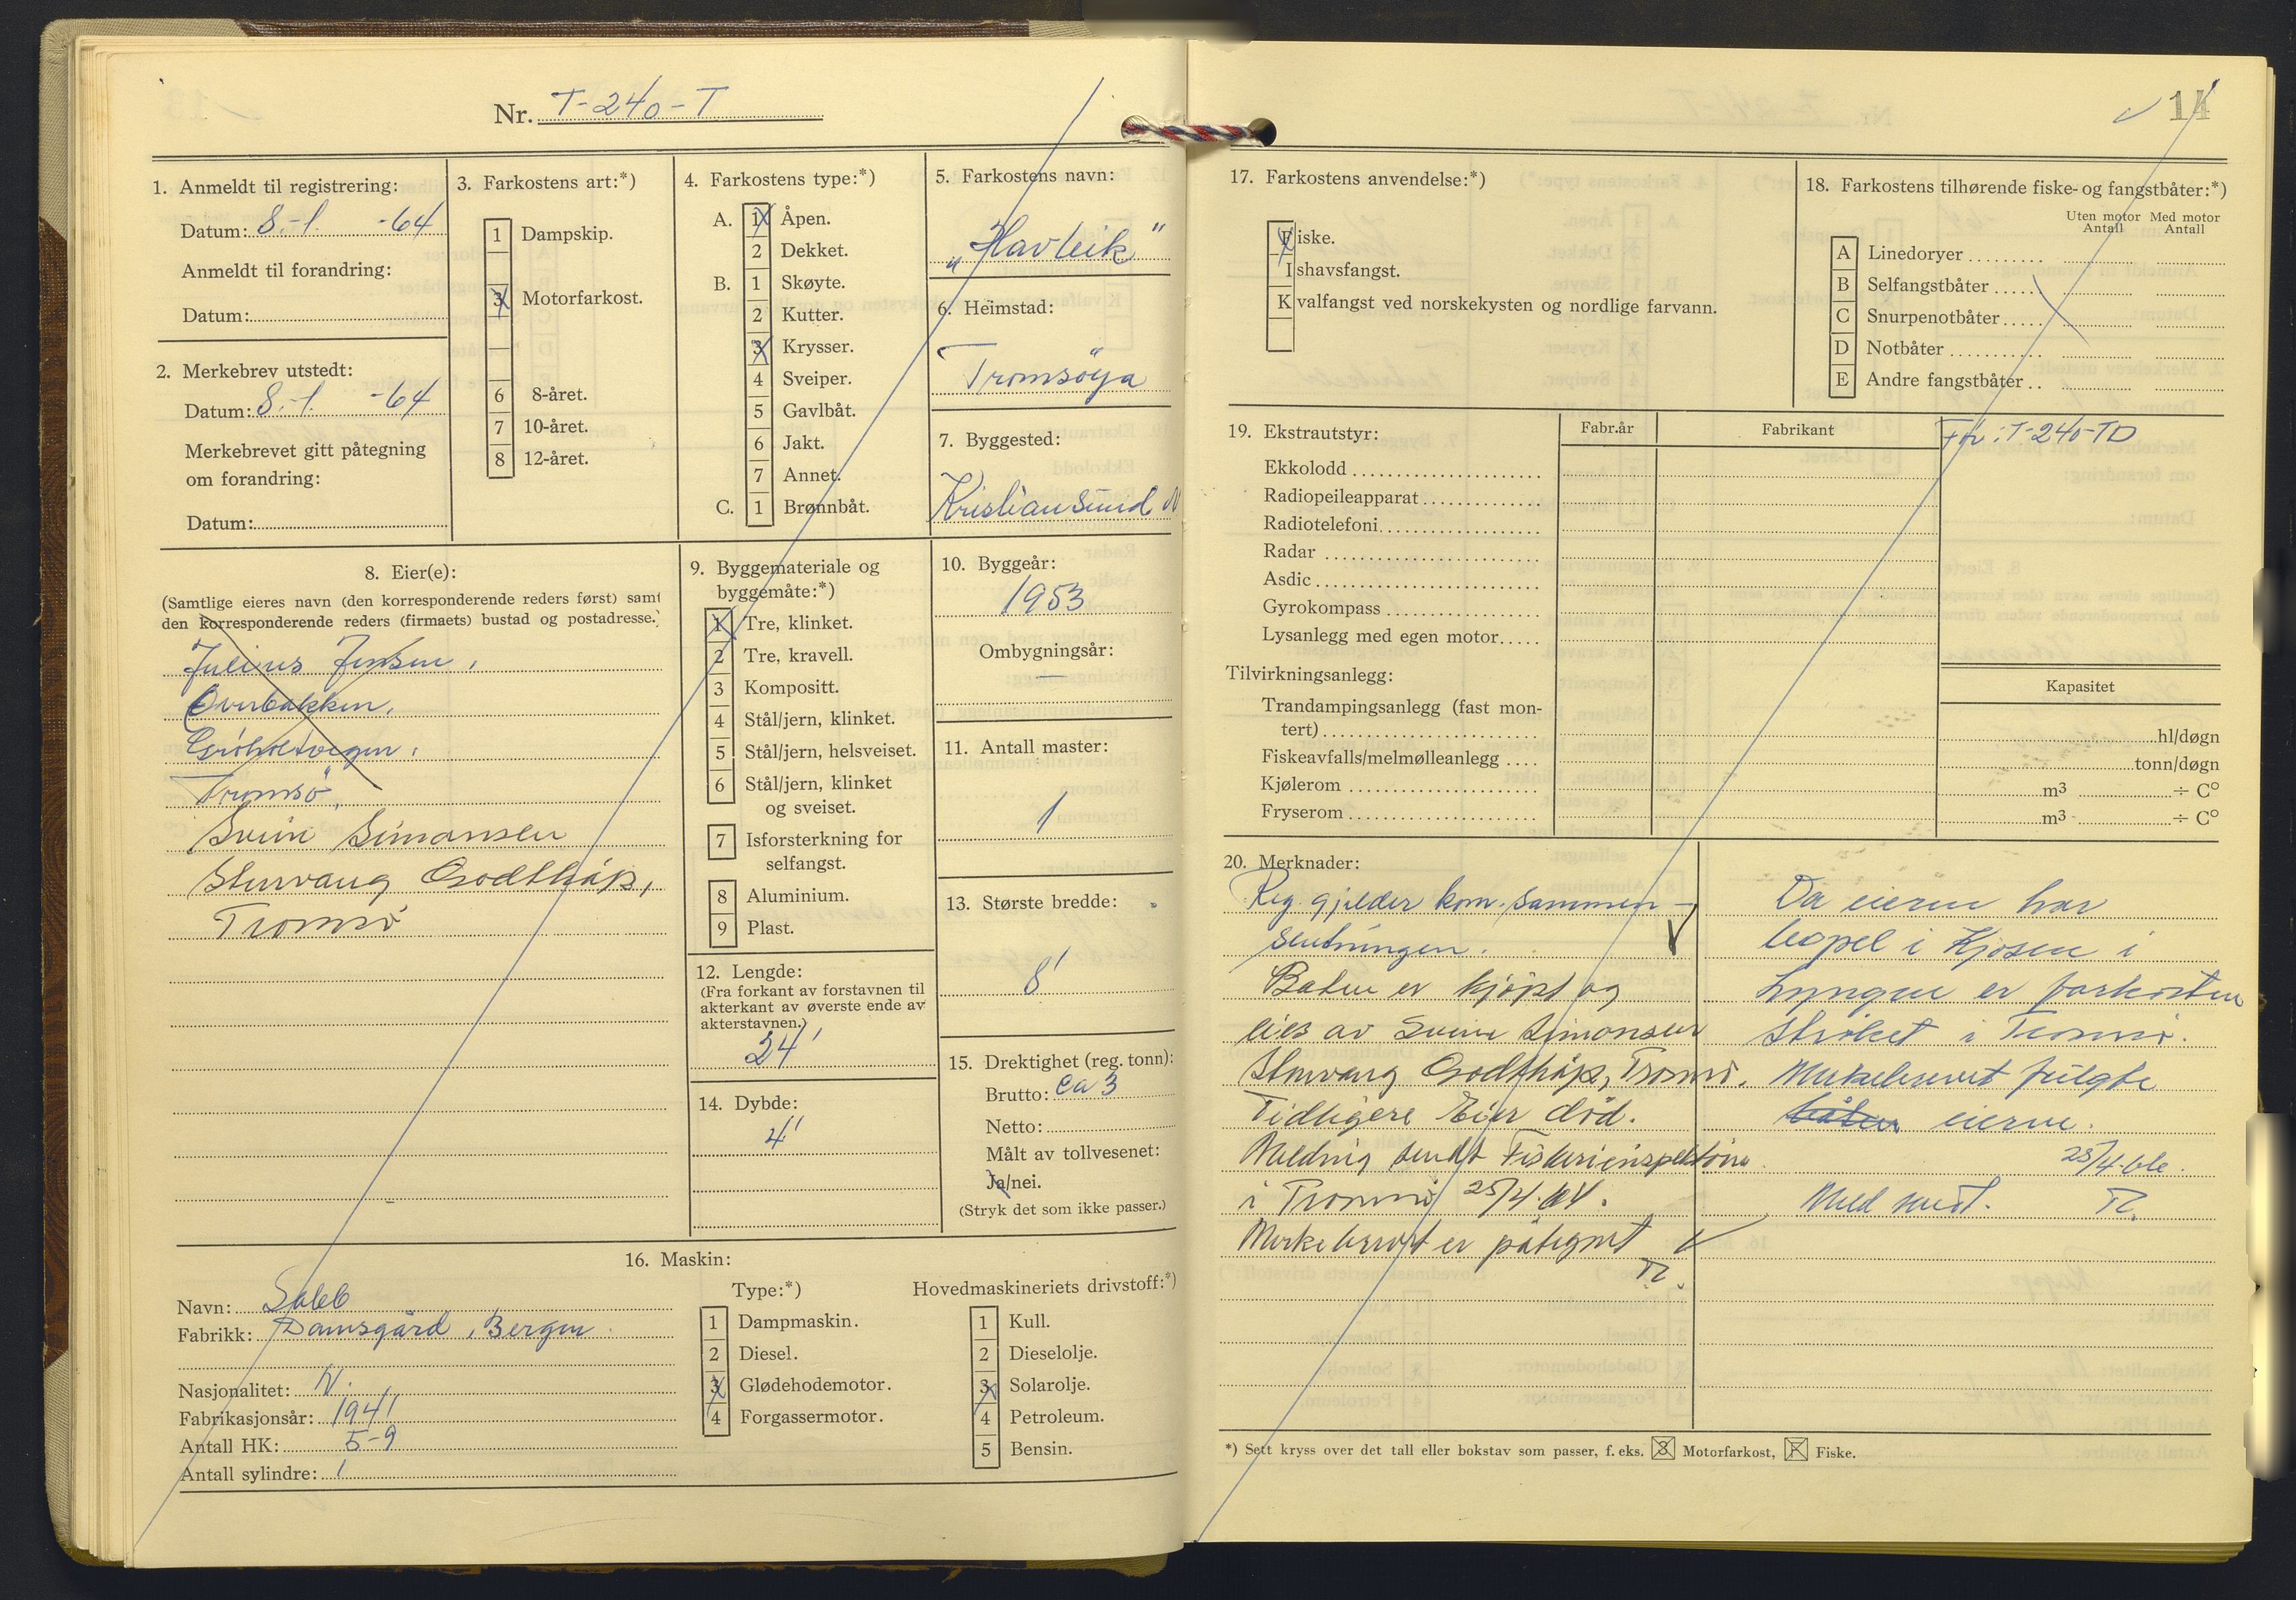 Nr. T-240-T
1. Anmeldt til registrering:
Datum: 8.-1. -64
Anmeldt til forandring:
Datum:
2. Merkebrev utstedt:
Datum: 8.-1. -64
Merkebrevet gitt påtegning
om forandring:
Datum:
3. Farkostens art:*)
1 Dampskip.
3 Motorfarkost.
6 8-året.
7 10-året.
8 12-året.
4. Farkostens type:*)
A. 1 Åpen.
2 Dekket.
B. 1 Skøyte.
2 Kutter.
3 Krysser.
4 Sveiper.
5 Gavlbåt.
6 Jakt.
7 Annet.
C. 1 Brønnbåt.
5. Farkostens navn:
„Havleik"
6. Heimstad:
Tromsöya
7. Byggested:
Kristiansund N
8. Eier(e):
(Samtlige eieres navn (den korresponderende reders først) samt
den korresponderende reders (firmaets) bustad og postadresse.)
Julius Jensen,
Overbakken,
Tromsö,
Svein Simonsen
Godthåp,
Tromsö
9. Byggemateriale og
byggemåte:*)
1 Tre, klinket.
2 Tre, kravell.
3 Kompositt.
4 Stål/jern, klinket.
5 Stål/jern, helsveiset.
6 Stål/jern, klinket
og sveiset.
7 Isforsterkning for
selfangst.
8 Aluminium.
9 Plast.
10. Byggeår:
1953
Ombygningsår:
—
11. Antall master:
1
12. Lengde:
(Fra forkant av forstavnen til
akterkant av øverste ende av
akterstavnen.)
24'
13. Største bredde:
8'
14. Dybde:
4'
15. Drektighet (reg. tonn):
Brutto: ca 3
Netto:
Målt av tollvesenet:
Ja/nei.
(Stryk det som ikke passer.)
16. Maskin:
Navn: Sabb
Fabrikk: Damsgård, Bergen
Nasjonalitet: N.
Fabrikasjonsår: 1941
Antall HK: 5-9
Antall sylindre: 1
Type:*)
1 Dampmaskin.
2 Diesel.
3 Glødehodemotor.
4 Forgassermotor.
Hovedmaskineriets drivstoff:*)
1 Kull.
2 Dieselolje.
3 Solarolje.
4 Petroleum.
5 Bensin.
14
17. Farkostens anvendelse:*)
Fiske.
Ishavsfangst.
Kvalfangst ved norskekysten og nordlige farvann.
18. Farkostens tilhørende fiske- og fangstbåter:*)
Uten motor Med motor
Antall Antall
A Linedoryer
B Selfangstbåter
C Snurpenotbåter
D Notbåter
E Andre fangstbåter
19. Ekstrautstyr:
Fabr.år
Fabrikant
Før: T-240-TD
Ekkolodd
Radiopeileapparat
Radiotelefoni
Radar
Asdic
Gyrokompass
Lysanlegg med egen motor
Tilvirkningsanlegg:
Kapasitet
Trandampingsanlegg (fast mon-
tert) hl/døgn
Fiskeavfalls/melmølleanlegg tonn/døgn
Kjølerom m³ ÷ C°
Fryserom m³ ÷ C°
20. Merknader:
Reg. gjelder kom. sammen-
slutningen.
Båten er kjöpt og
eies av Svein Simonsen
Godthåp, Tromsö.
Tidligere Eier död.
Melding sendt Fiskeriinspektören
i Tromsö 25/4.64.
Merkebrevet er påtegnet
Da eieren har
bopel i Kjosen i
Lyngen er farkosten
ströket i Tromsö.
Merkebrevet fulgte
båten eieren.
Meld sendt.
*) Sett kryss over det tall eller bokstav som passer, f. eks. 3 Motorfarkost, F Fiske.